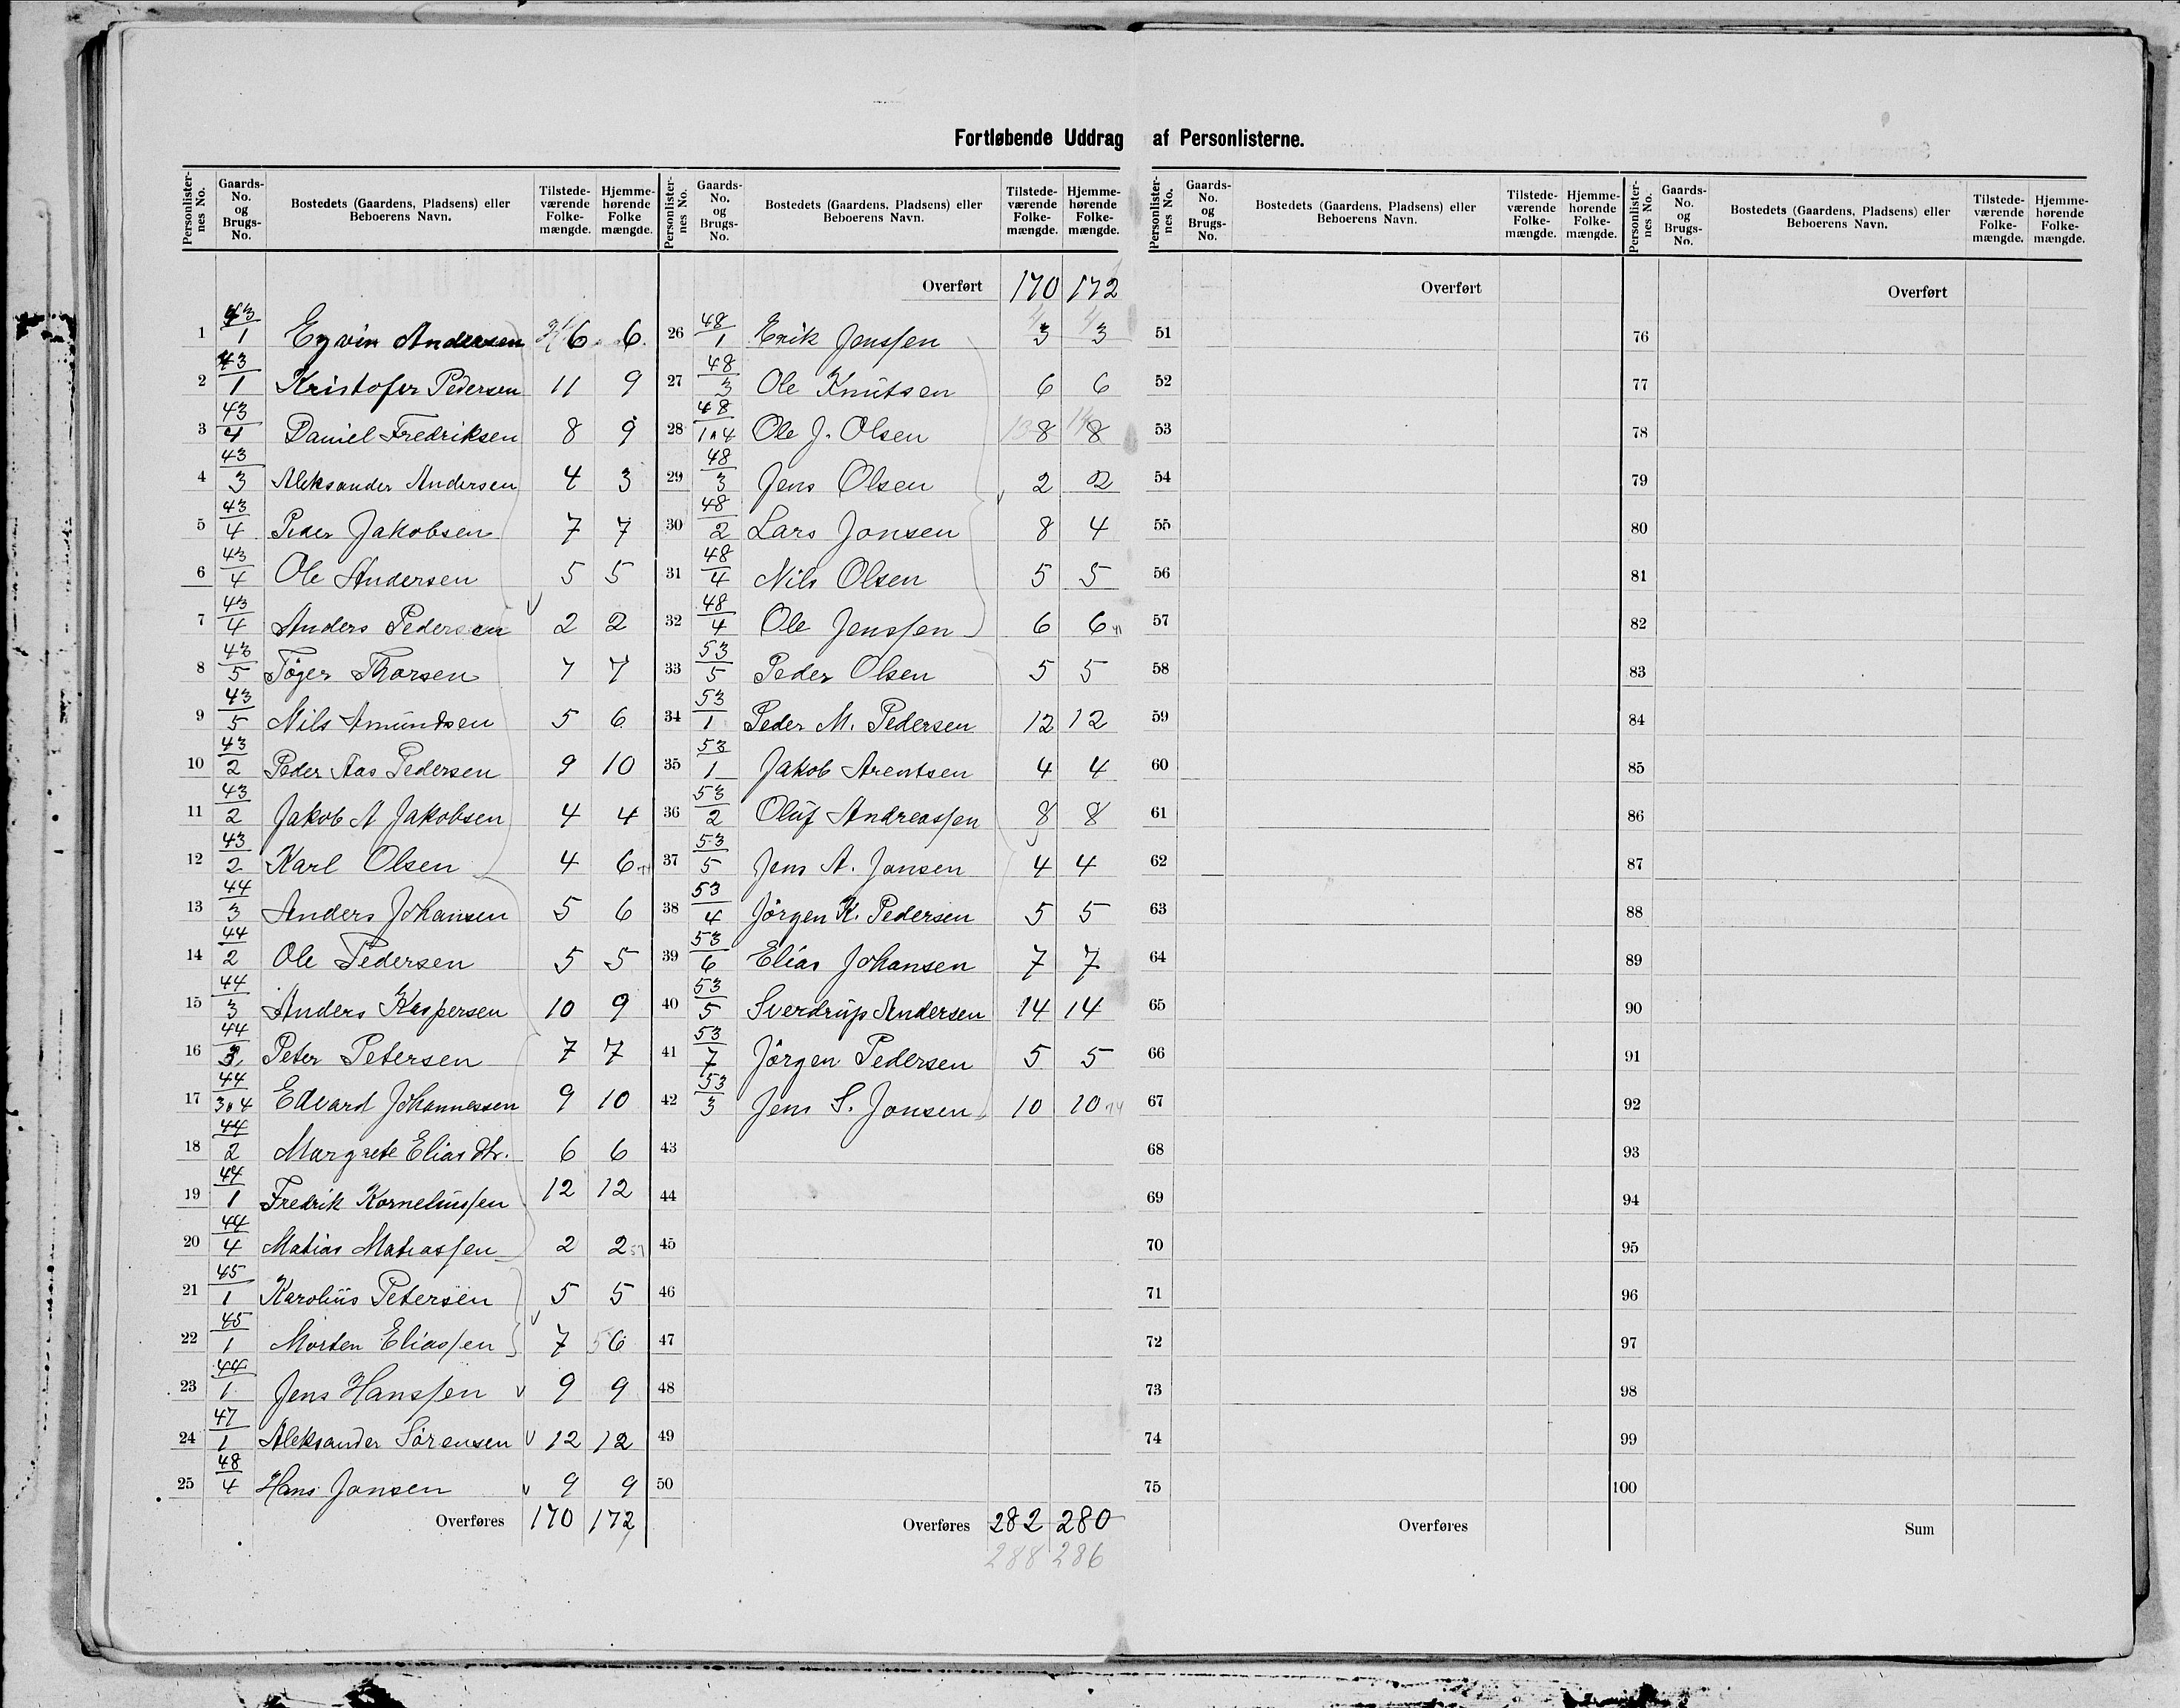 Fortløbende Uddrag af Personlisterne.
Personlisternes No. | Gaards-No. og Brugs-No. | Bostedets (Gaardens, Pladsens) eller Beboerens Navn. | Tilstedeværende Folkemængde. | Hjemmehørende Folkemængde.
1 43/1 Eyvin Andersen 6 6
2 43/1 Kristofer Pedersen 11 9
3 43/4 Daniel Fredriksen 8 9
4 43/3 Aleksander Andersen 4 3
5 43/4 Peder Jakobsen 7 7
6 43/4 Ole Andersen 5 5
7 43/4 Anders Pedersen 2 2
8 43/5 Tøger Thorsen 7 7
9 43/5 Nils Amundsen 5 6
10 43/2 Peder Aas Pedersen 9 10
11 43/2 Jakob A Jakobsen 4 4
12 43/2 Karl Olsen 4 6
13 44/3 Anders Johansen 5 6
14 44/2 Ole Pedersen 5 5
15 44/3 Anders Kaspersen 10 9
16 44/3 Peter Petersen 7 7
17 44/3 & 4 Edvard Johannessen 9 10
18 44/2 Margrete Elias dtr. 6 6
19 44/1 Fredrik Korneliussen 12 12
20 44/4 Matias Matiassen 2 2
21 45/1 Karolius Petersen 5 5
22 45/1 Morten Eliassen 7 6
23 44/1 Jens Hanssen 9 9
24 47/1 Aleksander Sørensen 12 12
25 48/4 Hans Jansen 9 9
Overføres 170 172
Overført 170 172
26 48/1 Erik Jenssen 3 3
27 48/3 Ole Knutsen 6 6
28 48/1 & 4 Ole J. Olsen 8 8
29 48/3 Jens Olsen 2 2
30 48/2 Lars Jonsen 8 4
31 48/4 Nils Olsen 5 5
32 48/4 Ole Jenssen 6 6
33 53/5 Peder Olsen 5 5
34 53/1 Peder M. Pedersen 12 12
35 53/1 Jakob Arentsen 4 4
36 53/2 Oluf Andreassen 8 8
37 53/5 Jens A. Jansen 4 4
38 53/4 Jørgen K. Pedersen 5 5
39 53/6 Elias Johansen 7 7
40 53/5 Sverdrup Andersen 14 14
41 53/7 Jørgen Pedersen 5 5
42 53/3 Jens S. Jonsen 10 10
43
44
45
46
47
48
49
50
Overføres 282 280
288 286
Personlisternes No. | Gaards-No. og Brugs-No. | Bostedets (Gaardens, Pladsens) eller Beboerens Navn. | Tilstedeværende Folkemængde. | Hjemmehørende Folkemængde.
Overført
51
52
53
54
55
56
57
58
59
60
61
62
63
64
65
66
67
68
69
70
71
72
73
74
75
Overføres
Overført
76
77
78
79
80
81
82
83
84
85
86
87
88
89
90
91
92
93
94
95
96
97
98
99
100
Sum